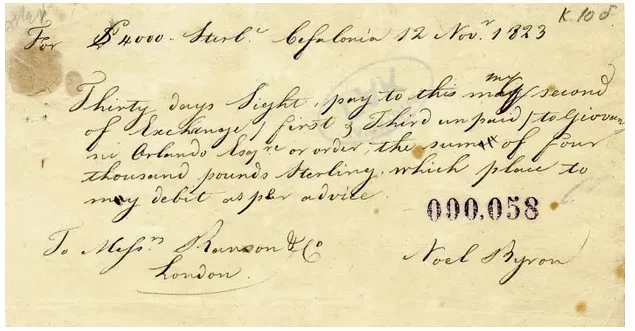 K. 10 δ
For £ 4000 - Sterl.g Cefalonia 12 Nov.r 1823
my
Thirty days Sight, pay to this my second
of Exchange, first & Third unpaid, to Giovan
ni Orlando Esq.re or order, the sum of four
thousand pounds Sterling, which place to
my debit as per advice.
000,058
To Mess.rs Ransom & Co Noel Byron
London.